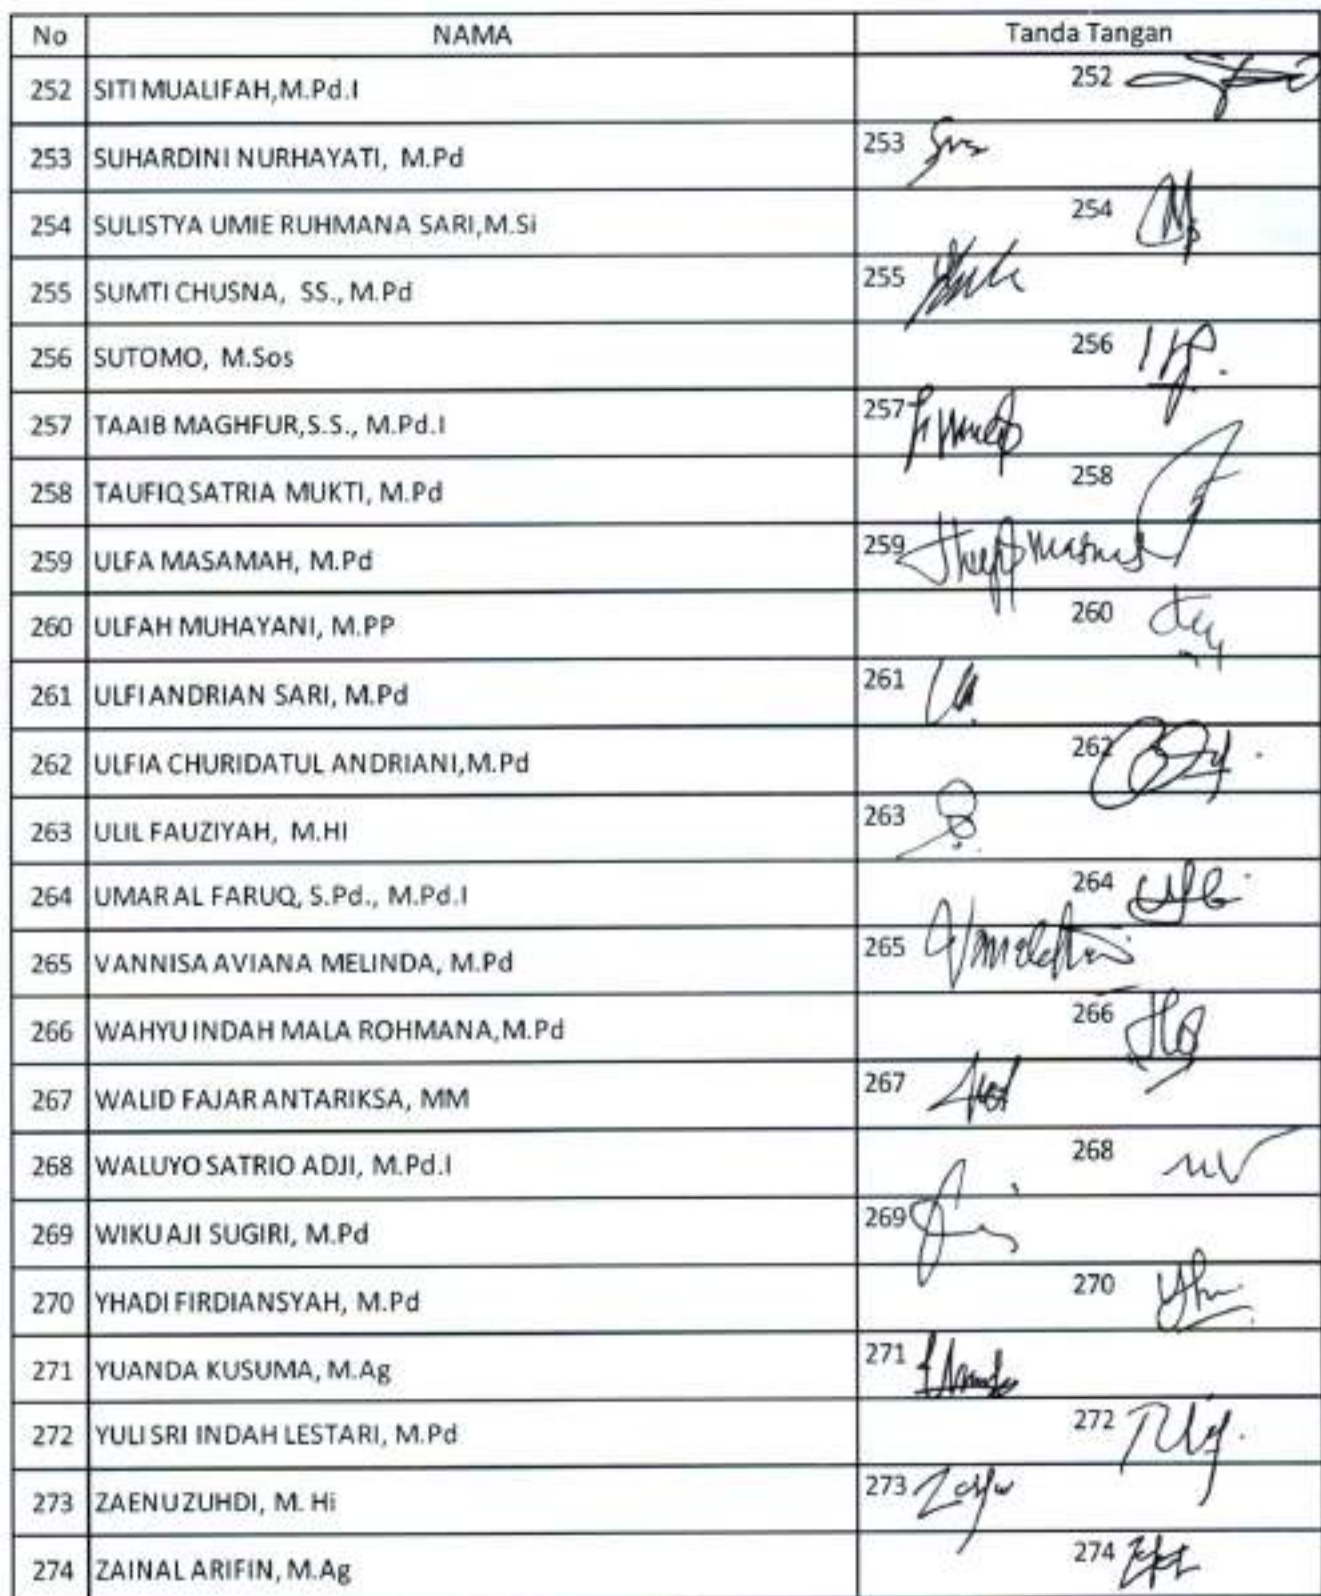 No NAMA Tanda Tangan
252 SITI MUALIFAH,M.Pd.I 252
253 SUHARDINI NURHAYATI, M.Pd 253
254 SULISTYA UMIE RUHMANA SARI,M.Si 254
255 SUMTI CHUSNA, SS., M.Pd 255
256 SUTOMO, M.Sos 256
257 TAAIB MAGHFUR,S.S., M.Pd.I 257
258 TAUFIQ SATRIA MUKTI, M.Pd 258
259 ULFA MASAMAH, M.Pd 259
260 ULFAH MUHAYANI, M.PP 260
261 ULFI ANDRIAN SARI, M.Pd 261
262 ULFIA CHURIDATUL ANDRIANI,M.Pd 262
263 ULIL FAUZIYAH, M.HI 263
264 UMAR AL FARUQ, S.Pd., M.Pd.I 264
265 VANNISA AVIANA MELINDA, M.Pd 265
266 WAHYU INDAH MALA ROHMANA,M.Pd 266
267 WALID FAJAR ANTARIKSA, MM 267
268 WALUYO SATRIO ADJI, M.Pd.I 268
269 WIKU AJI SUGIRI, M.Pd 269
270 YHADI FIRDIANSYAH, M.Pd 270
271 YUANDA KUSUMA, M.Ag 271
272 YULI SRI INDAH LESTARI, M.Pd 272
273 ZAENU ZUHDI, M. Hi 273
274 ZAINAL ARIFIN, M.Ag 274